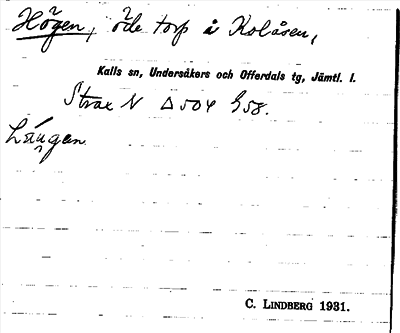 Högen, öde torp å Kolåsen,
Kalls sn, Undersåkers och Offerdals tg, Jämtl. l.
Strax N Δ504 G58.
Längan
C. LINDBERG 1931.